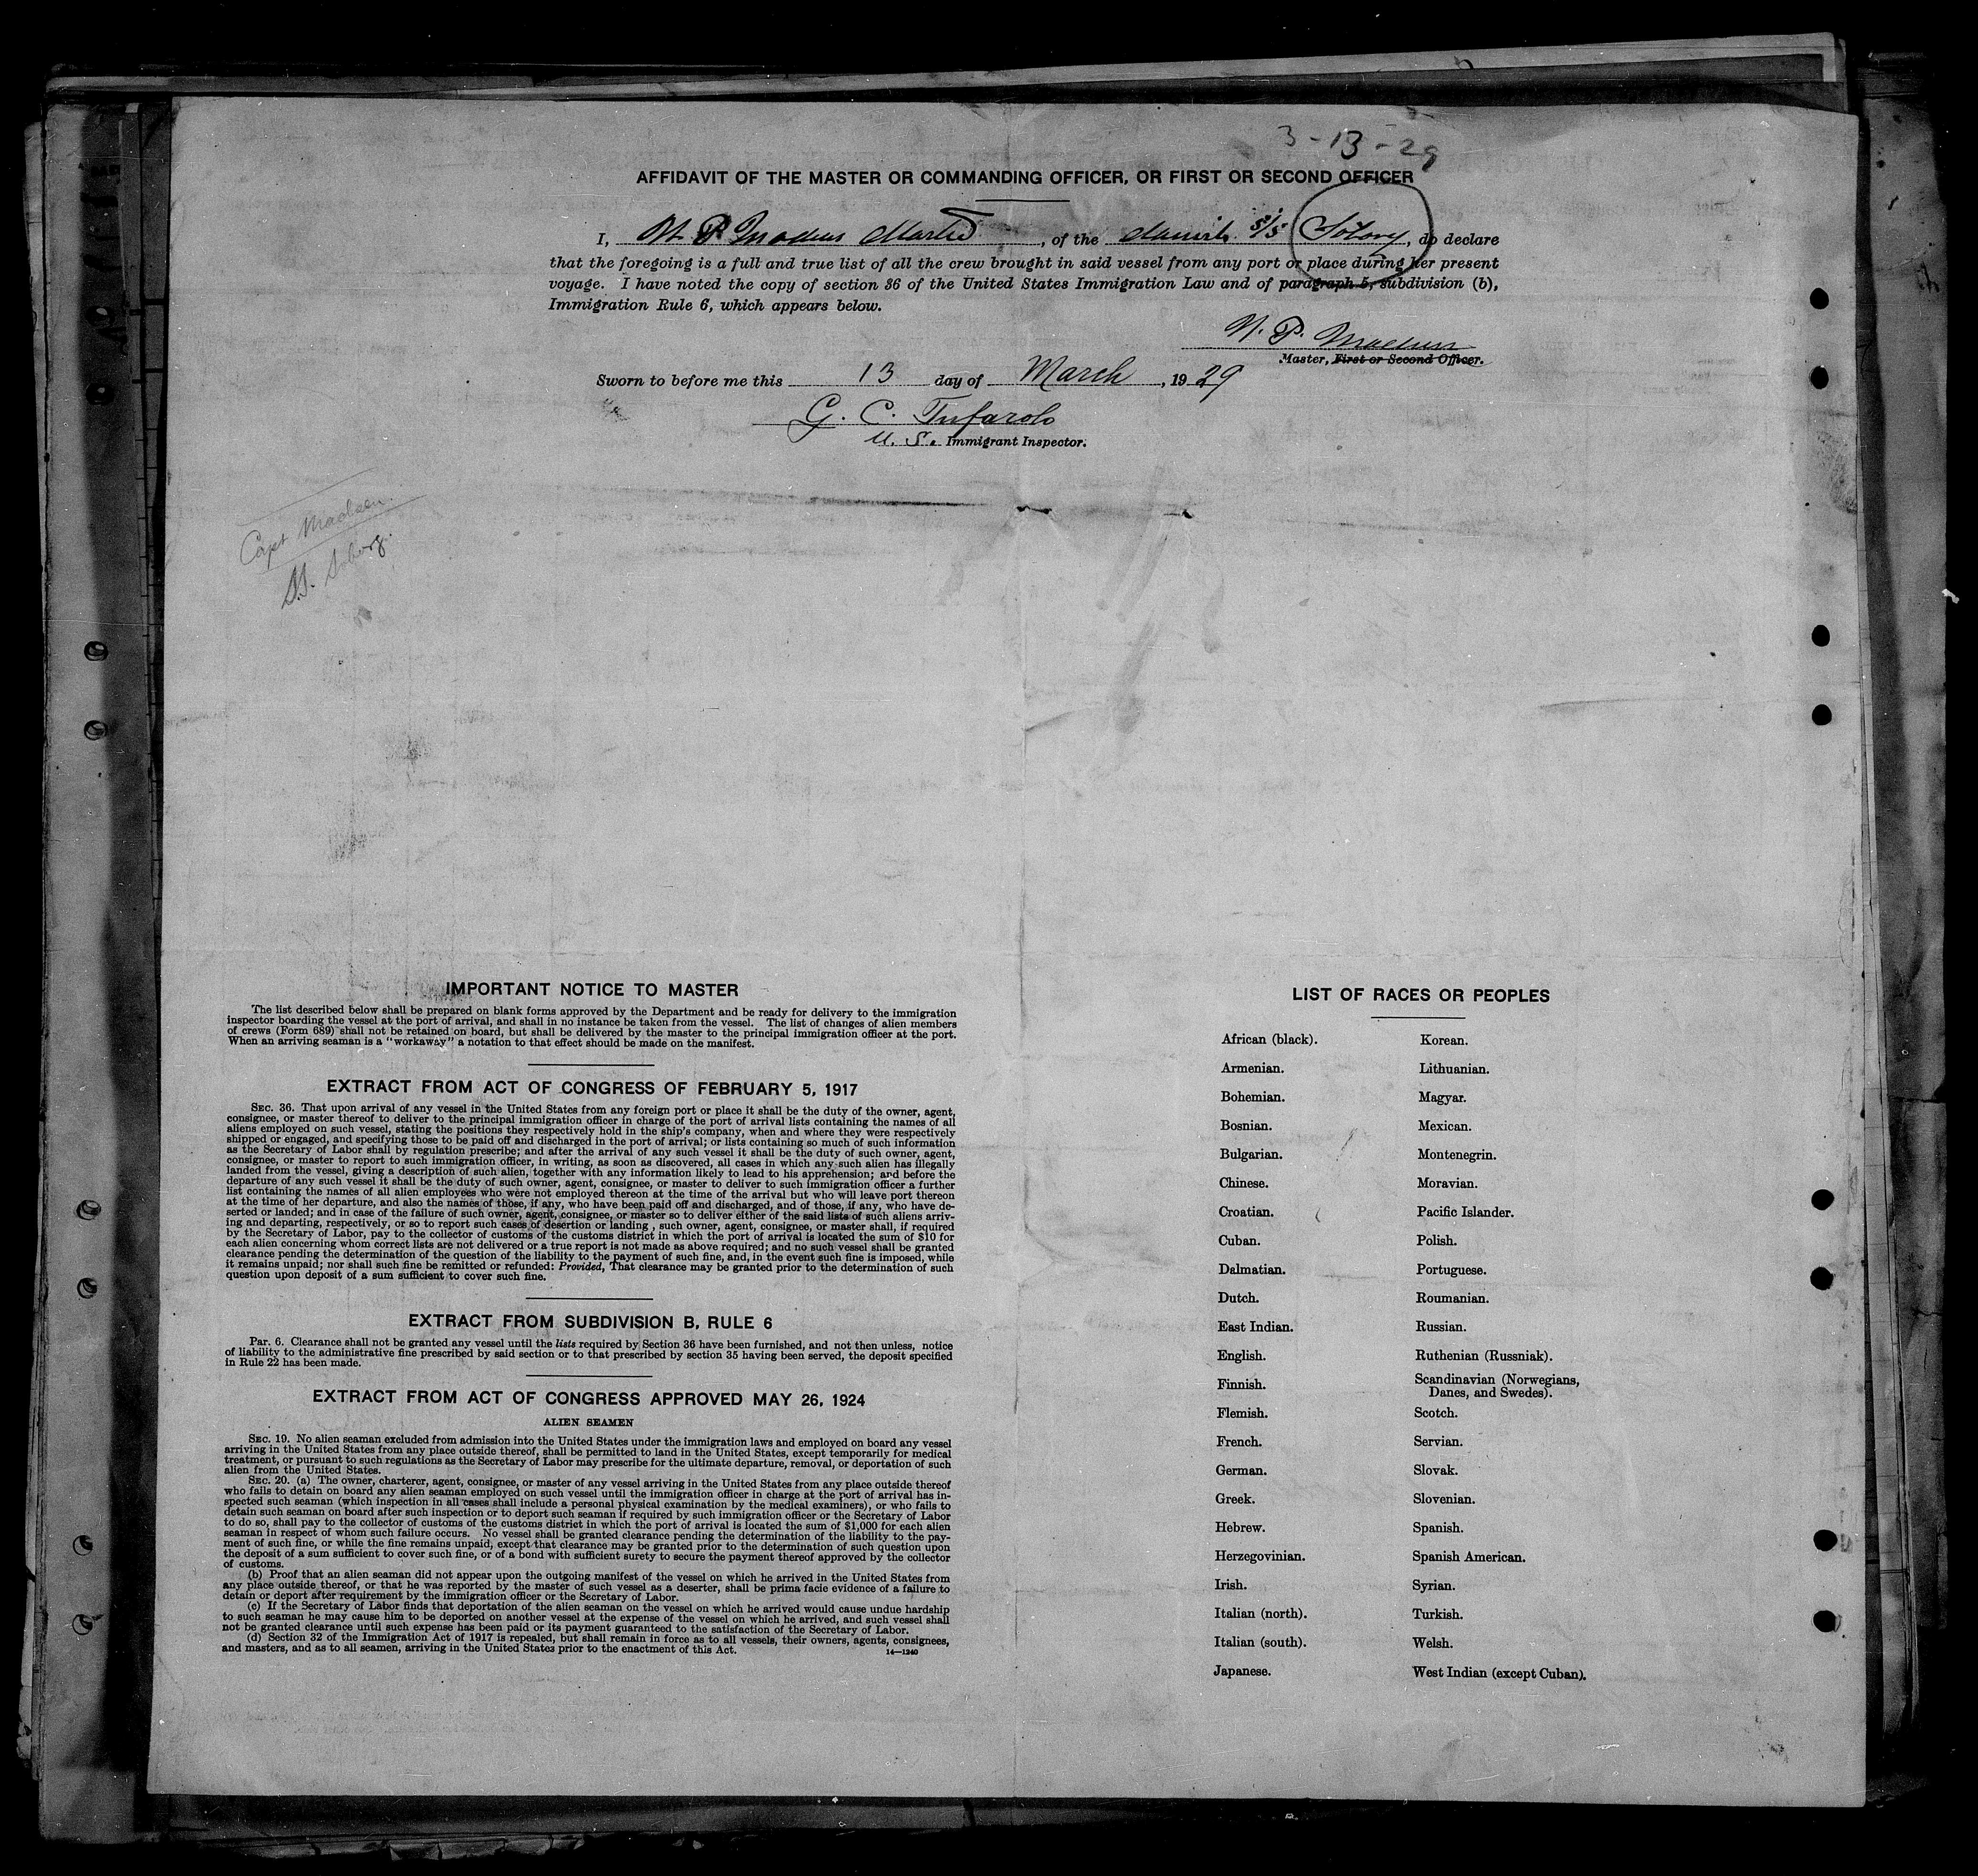 3-13-29
AFFIDAVIT OF THE MASTER OR COMMANDING OFFICER, OR FIRST OR SECOND OFFICER
I, N. P. Madsen Master, of the danish s/s Soborg, do declare
that the foregoing is a full and true list of all the crew brought in said vessel from any port or place during her present
voyage. I have noted the copy of section 36 of the United States Immigration Law and of paragraph 5, subdivision (b),
Immigration Rule 6, which appears below.
N. P. Madsen
Master, First or Second Officer.
Sworn to before me this 13 day of March, 1929
G. C. Tufarolo
U. S. Immigrant Inspector.
Capt Madsen.
S.S. Soborg.
IMPORTANT NOTICE TO MASTER
The list described below shall be prepared on blank forms approved by the Department and be ready for delivery to the immigration
inspector boarding the vessel at the port of arrival, and shall in no instance be taken from the vessel. The list of changes of alien members
of crews (Form 689) shall not be retained on board, but shall be delivered by the master to the principal immigration officer at the port.
When an arriving seaman is a "workaway" a notation to that effect should be made on the manifest.
EXTRACT FROM ACT OF CONGRESS OF FEBRUARY 5, 1917
SEC. 36. That upon arrival of any vessel in the United States from any foreign port or place it shall be the duty of the owner, agent,
consignee, or master thereof to deliver to the principal immigration officer in charge of the port of arrival lists containing the names of all
aliens employed on such vessel, stating the positions they respectively hold in the ship's company, when and where they were respectively
shipped or engaged, and specifying those to be paid off and discharged in the port of arrival; or lists containing so much of such information
as the Secretary of Labor shall by regulation prescribe; and after the arrival of any such vessel it shall be the duty of such owner, agent,
consignee, or master to report to such immigration officer, in writing, as soon as discovered, all cases in which any such alien has illegally
landed from the vessel, giving a description of such alien, together with any information likely to lead to his apprehension; and before the
departure of any such vessel it shall be the duty of such owner, agent, consignee, or master to deliver to such immigration officer a further
list containing the names of all alien employees who were not employed thereon at the time of the arrival but who will leave port thereon
at the time of her departure, and also the names of those, if any, who have been paid off and discharged, and of those, if any, who have de-
serted or landed; and in case of the failure of such owner, agent, consignee, or master so to deliver either of the said lists of such aliens arriv-
ing and departing, respectively, or so to report such cases of desertion or landing , such owner, agent, consignee, or master shall, if required
by the Secretary of Labor, pay to the collector of customs of the customs district in which the port of arrival is located the sum of $10 for
each alien concerning whom correct lists are not delivered or a true report is not made as above required; and no such vessel shall be granted
clearance pending the determination of the question of the liability to the payment of such fine, and, in the event such fine is imposed, while
it remains unpaid; nor shall such fine be remitted or refunded: Provided, That clearance may be granted prior to the determination of such
question upon deposit of a sum sufficient to cover such fine.
EXTRACT FROM SUBDIVISION B, RULE 6
Par. 6. Clearance shall not be granted any vessel until the lists required by Section 36 have been furnished, and not then unless, notice
of liability to the administrative fine prescribed by said section or to that prescribed by section 35 having been served, the deposit specified
in Rule 22 has been made.
EXTRACT FROM ACT OF CONGRESS APPROVED MAY 26, 1924
ALIEN SEAMEN
SEC. 19. No alien seaman excluded from admission into the United States under the immigration laws and employed on board any vessel
arriving in the United States from any place outside thereof, shall be permitted to land in the United States, except temporarily for medical
treatment, or pursuant to such regulations as the Secretary of Labor may prescribe for the ultimate departure, removal, or deportation of such
alien from the United States.
SEC. 20. (a) The owner, charterer, agent, consignee, or master of any vessel arriving in the United States from any place outside thereof
who fails to detain on board any alien seaman employed on such vessel until the immigration officer in charge at the port of arrival has in-
spected such seaman (which inspection in all cases shall include a personal physical examination by the medical examiners), or who fails to
detain such seaman on board after such inspection or to deport such seaman if required by such immigration officer or the Secretary of Labor
to do so, shall pay to the collector of customs of the customs district in which the port of arrival is located the sum of $1,000 for each alien
seaman in respect of whom such failure occurs. No vessel shall be granted clearance pending the determination of the liability to the pay-
ment of such fine, or while the fine remains unpaid, except that clearance may be granted prior to the determination of such question upon
the deposit of a sum sufficient to cover such fine, or of a bond with sufficient surety to secure the payment thereof approved by the collector
of customs.
(b) Proof that an alien seaman did not appear upon the outgoing manifest of the vessel on which he arrived in the United States from
any place outside thereof, or that he was reported by the master of such vessel as a deserter, shall be prima facie evidence of a failure to
detain or deport after requirement by the immigration officer or the Secretary of Labor.
(c) If the Secretary of Labor finds that deportation of the alien seaman on the vessel on which he arrived would cause undue hardship
to such seaman he may cause him to be deported on another vessel at the expense of the vessel on which he arrived, and such vessel shall
not be granted clearance until such expense has been paid or its payment guaranteed to the satisfaction of the Secretary of Labor.
(d) Section 32 of the Immigration Act of 1917 is repealed, but shall remain in force as to all vessels, their owners, agents, consignees,
and masters, and as to all seamen, arriving in the United States prior to the enactment of this Act.
14—1240
LIST OF RACES OR PEOPLES
African (black).
Armenian.
Bohemian.
Bosnian.
Bulgarian.
Chinese.
Croatian.
Cuban.
Dalmatian.
Dutch.
East Indian.
English.
Finnish.
Flemish.
French.
German.
Greek.
Hebrew.
Herzegovinian.
Irish.
Italian (north).
Italian (south).
Japanese.
Korean.
Lithuanian.
Magyar.
Mexican.
Montenegrin.
Moravian.
Pacific Islander.
Polish.
Portuguese.
Roumanian.
Russian.
Ruthenian (Russniak).
Scandinavian (Norwegians,
Danes, and Swedes).
Scotch.
Servian.
Slovak.
Slovenian.
Spanish.
Spanish American.
Syrian.
Turkish.
Welsh.
West Indian (except Cuban).